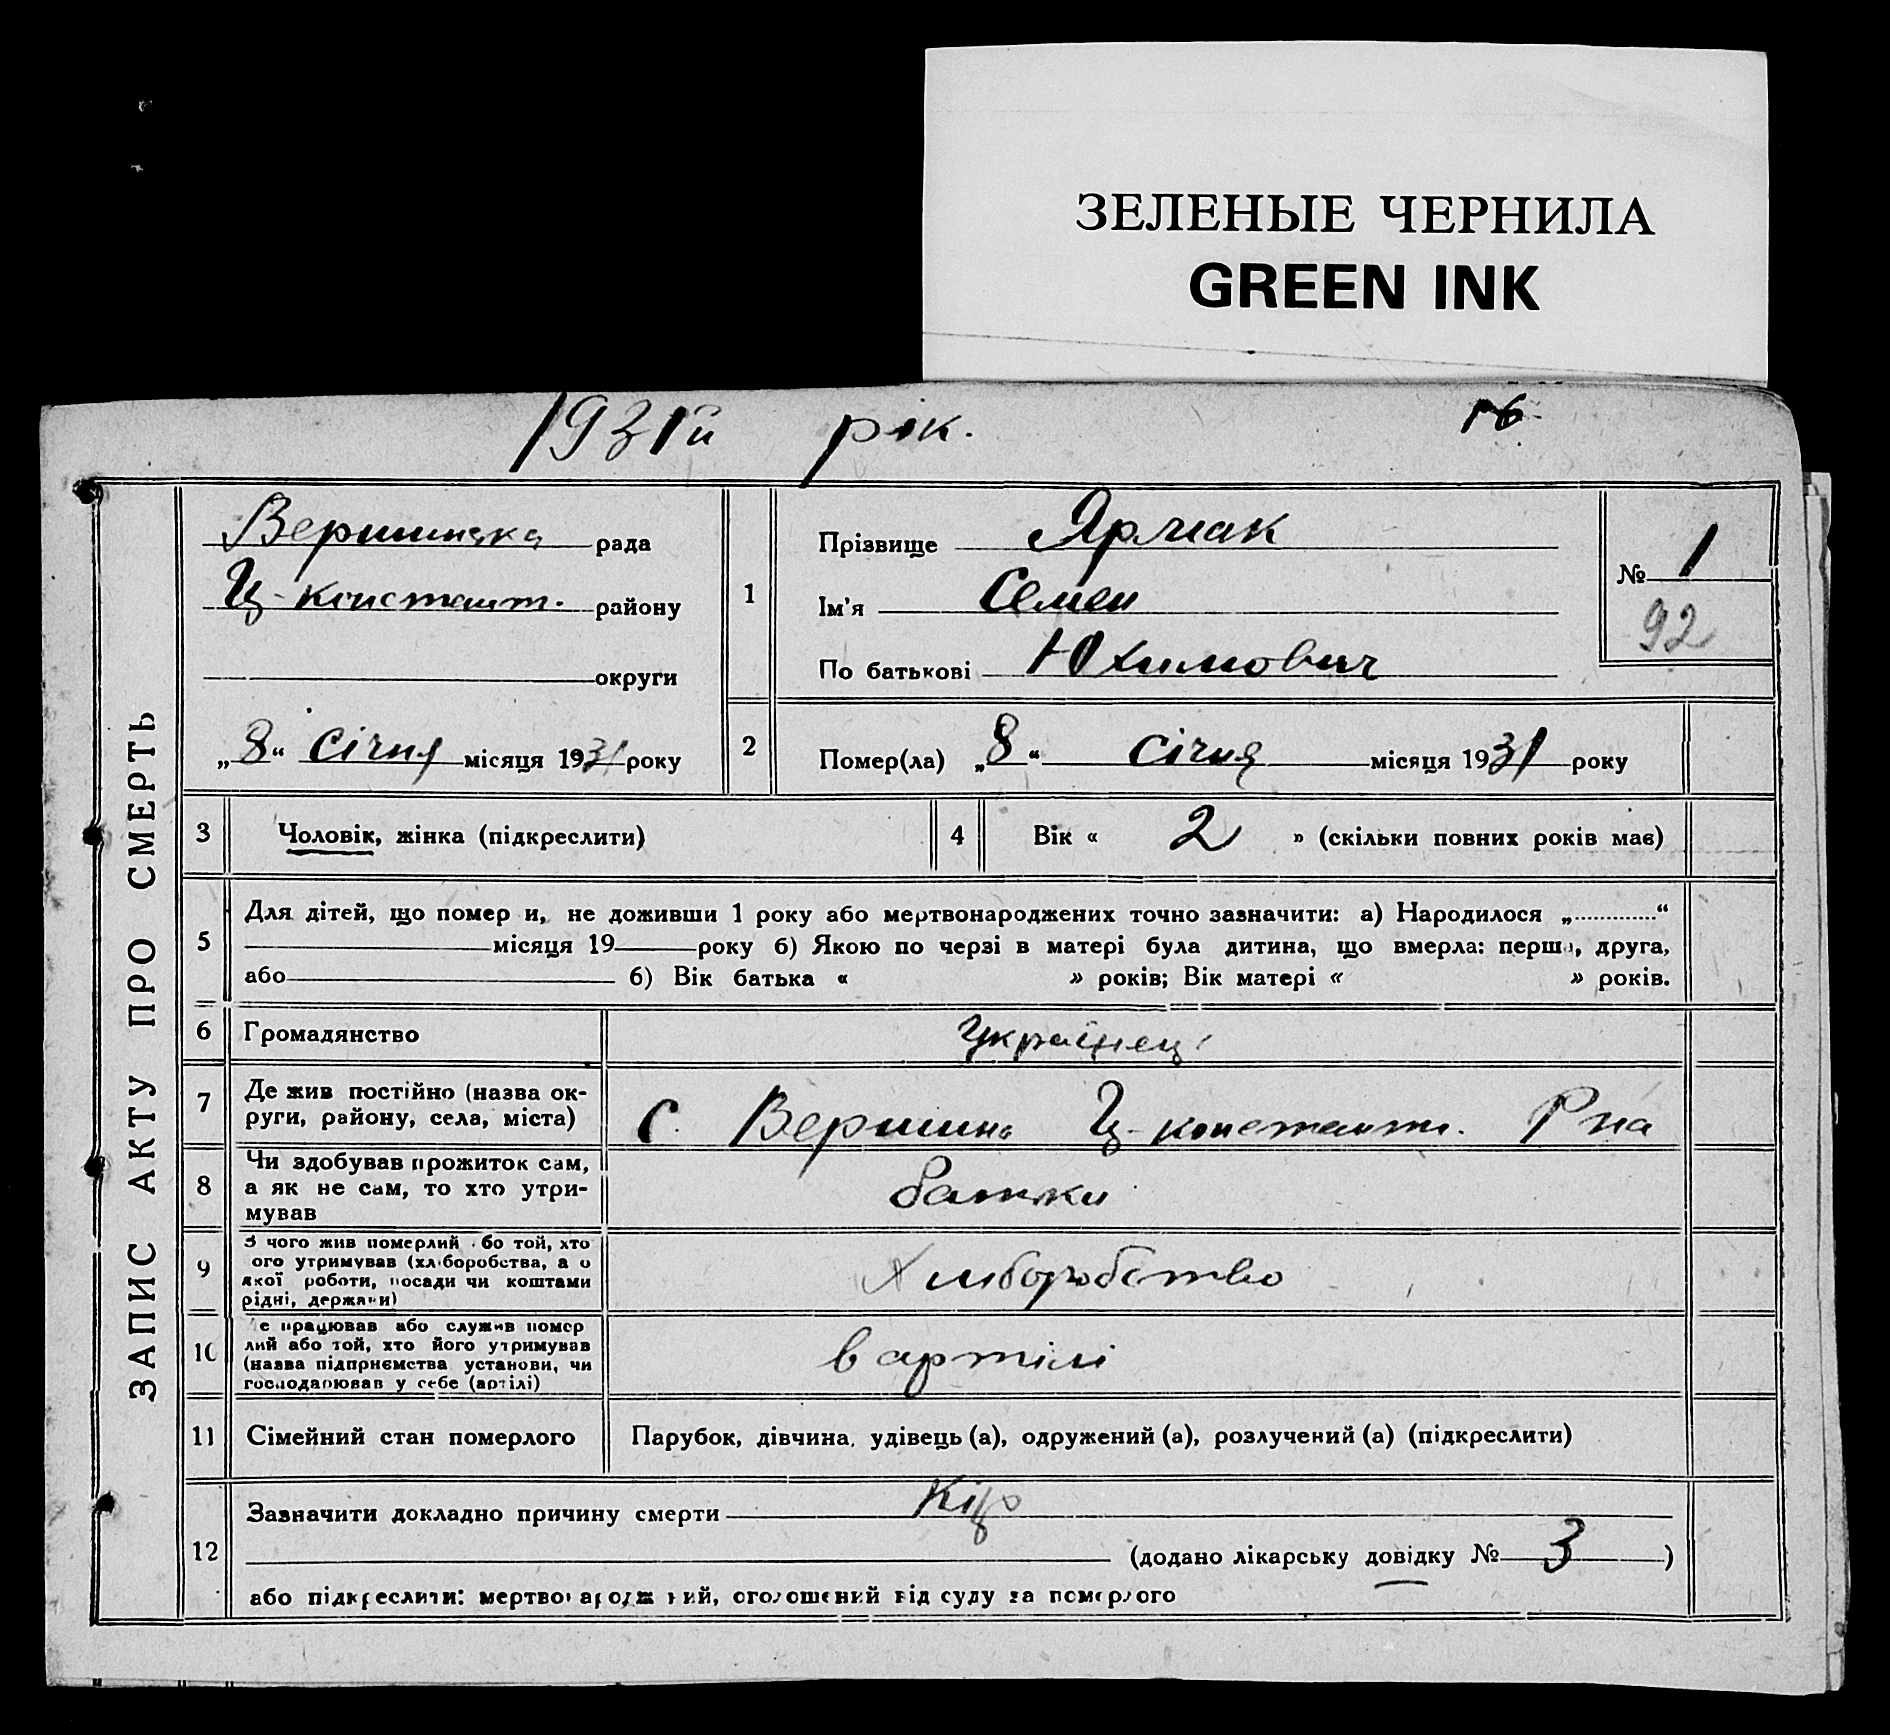 ЗЕЛЕНЫЕ ЧЕРНИЛА
GREEN INK
1931й рік.
16
ЗАПИС АКТУ ПРО СМЕРТЬ
Вершинска рада
Ц-констант. району
округи
„8“ січня місяця 1931 року
1
Прізвище Ярмак
Ім'я Семен
По батькові Юхимович
№ 1
92
2
Помер(ла) „8“ січня місяця 1931 року
3
Чоловік, жінка (підкреслити)
4
Вік « 2 » (скільки повних років має)
5
Для дітей, що помер и, не доживши 1 року або мертвонароджених точно зазначити: а) Народилося „............“
місяця 19 року б) Якою по черзі в матері була дитина, що вмерла: перша, друга,
або б) Вік батька « » років; Вік матері « » років.
6
Громадянство
Українець
7
Де жив постійно (назва ок-
руги, району, села, міста)
С. Вершина Ц-констант. Р на
8
Чи здобував прожиток сам,
а як не сам, то хто утри-
мував
батьки
9
З чого жив померлий або той, хто
ого утримував (хліборобства, а о
якої роботи, посади чи коштами
рідні, держави)
Хліборобство
10
е працював або служив помер
лий або той, хто його утримував
(назва підприємства установи, чи
господарював у себе (артілі)
в артілі
11
Сімейний стан померлого
Парубок, дівчина, удівець (а), одружений (а), розлучений (а) (підкреслити)
12
Зазначити докладно причину смерти Кір
(додано лікарську довідку № 3 )
або підкреслити: мертвонароджений, оголошений від суду за померлого